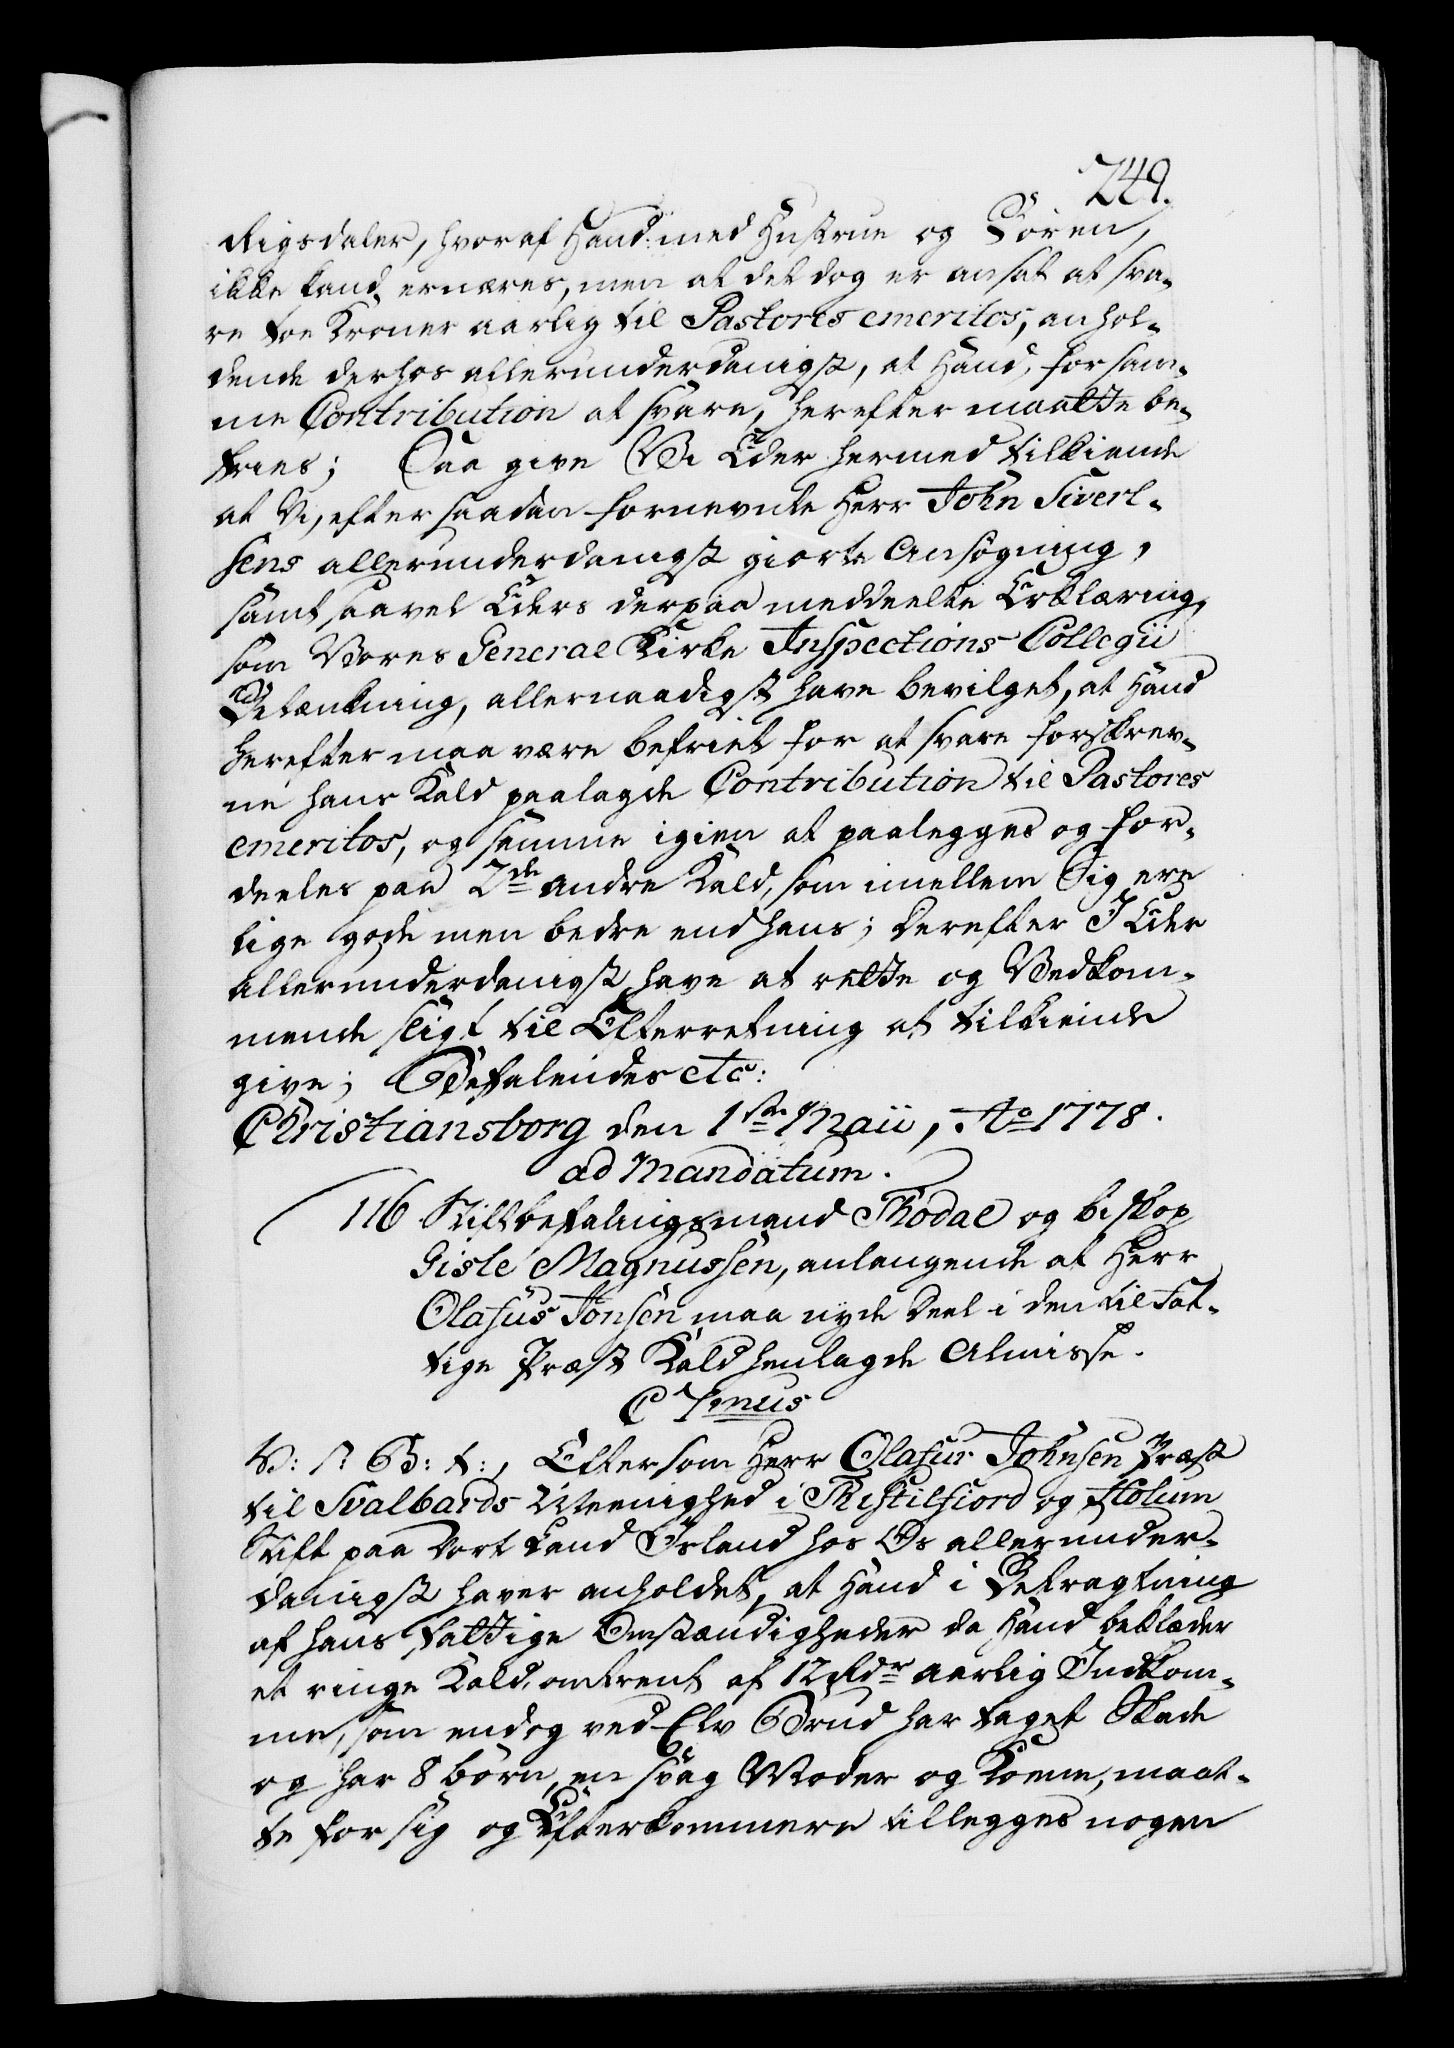 249.
Rigsdaler, hvoraf Hand med Hustrue og Börn,
ikke kand ernæres, men at det dog er ansat at sva-
re toe Kroner aarlig til Pastores emeritos, anhol-
dende derhos allerunderdanigst, at Hand, for sam-
me Contribution at svare, herefter maatte be-
fries; Saa give Vi Eder hermed tilkiende
at Vi, efter saadan fornevnte Herr John Sivert-
sens allerunderdanigst giorte Ansögning,
samt saavel Eders derpaa meddeelte Erklæring,
som Vores General Kirke Inspections Collegii
Betænkning, allernaadigst have bevilget, at Hand
herefter maa være befriet for at svare forskrev-
ne hans Kald paalagde Contribution til Pastores
emeritos, og samme igien at paalegges og for-
deeles paa 2de andre Kald, som imellem Sig ere
lige gode men bedre end hans; Derefter I Eder
allerunderdanigst have at rette og Vedkom-
mende sligt til Efterretning at tilkiende
give; Befalendes etc:
Christiansborg den 1ste Maii, Ao 1778.
ad Mandatum.
116 Stiftbefalingsmand Thodal og biskop
Gisle Magnussen, anlangende at Herr
Olafus Jonsen maa nyde Deel i den til Fat-
tige Præst Kald henlagde Almisse.
C 7mus
V: S: G: T:, Eftersom Herr Olafur Johnsen Præst
til Svalbards Meenighed i Thistilfiord og Holum
Stift paa Vort Land Island hos Os allerunder-
danigst haver anholdet, at Hand i Betragtning
af hans fattige Omstændigheder da Hand beklæder
et ringe Kald, omtrent af 12 Rdr aarlig Indkom-
me, som endog ved Elv Brud har taget Skade
og har 8 börn, en svag Moder og Kone, maat-
te for sig og Efterkommere tillegges nogen